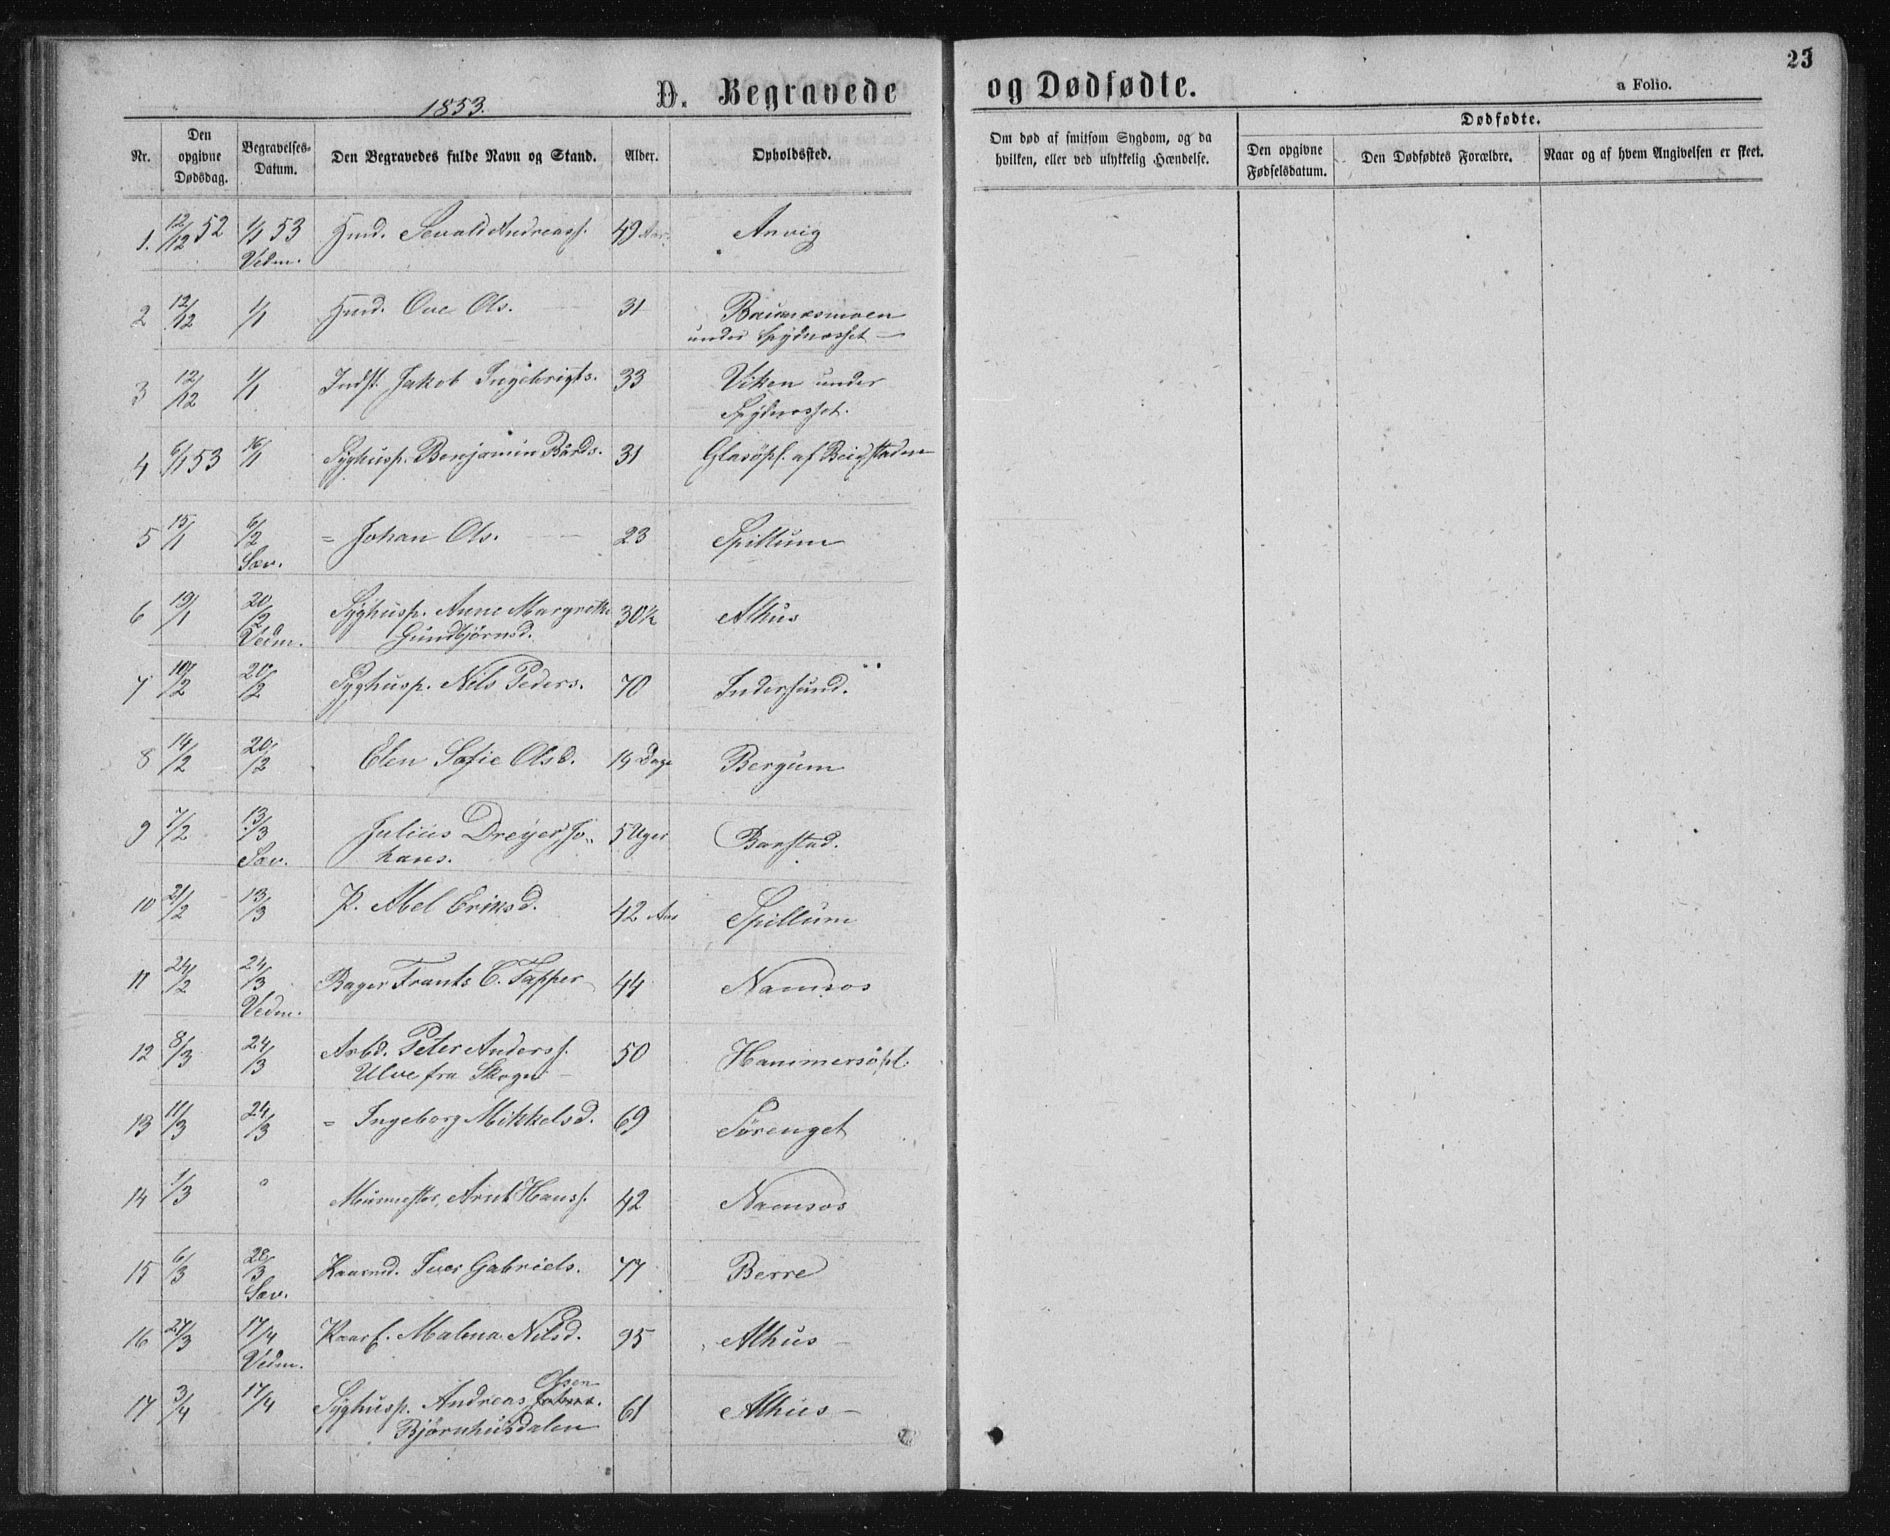 23
1853.
D. Begravede og Dødfødte.
a Folio.
Nr.
Den opgivne Dødsdag.
Begravelses-Datum.
Den Begravedes fulde Navn og Stand.
Alder.
Opholdssted.
Om død af smitsom Sygdom, og da hvilken, eller ved ulykkelig Hændelse.
Dødfødte.
Den opgivne Fødselsdatum.
Den Dødfødtes Forældre.
Naar og af hvem Angivelsen er skeet.
1. 12/12 52 1/1 53 Hmd. Sevald Andreass. 49 Aar. Anvig
Vedm.
2 12/12 1/1 Hmd. Ove Ols. 31
under Spydnesset
3 12/12 1/1 Indst. Jakob Ingebrigts. 33 Viken under
Spydnesset.
4 6/1 53 16/1 Syghusp. Benjamin Bårds. 31 Glasöpl. af Beidstaden
5 15/1 6/2 = Johan Ols. 23 Spillum
Sæv.
6 19/1 20/2 Syghusp. Anne Margrethe 30½ Alhus
Vedm. Gundbjørnsd.
7 10/2 20/2 Syghusp. Nils Peders. 70 Indersund.
8 14/2 20/2 Elen Sofie Olsd. 14 Dage Bergum
9 7/2 13/3 Julius Dreyer Jo- 5 Uger Banstad.
Sæv. hans.
10 21/2 13/3 P. Abel Eriksd. 42 Aar Spillum
11 24/2 24/3 Bager Frants C. Tapper 44 Namsos
Vedm.
12 8/3 24/3 Arbd. Peter Anderss. 50 Hammersöpl.
Ulve fra Skage
13 11/3 24/3 = Ingeborg Mikkelsd. 69 Sørenget
14 1/3 " Murmester, Arnt Hanss. 42 Namsos
15 6/3 28/3 Kaarmd. Iver Gabriels. 77 Berre
Sæv.
16 27/3 17/4 Kaarf. Malena Nilsd. 95 Alhus
Vedm.
Olsen
17 3/4 17/4 Syghusp. Andreas 61 Alhus
Bjørnhusdalen